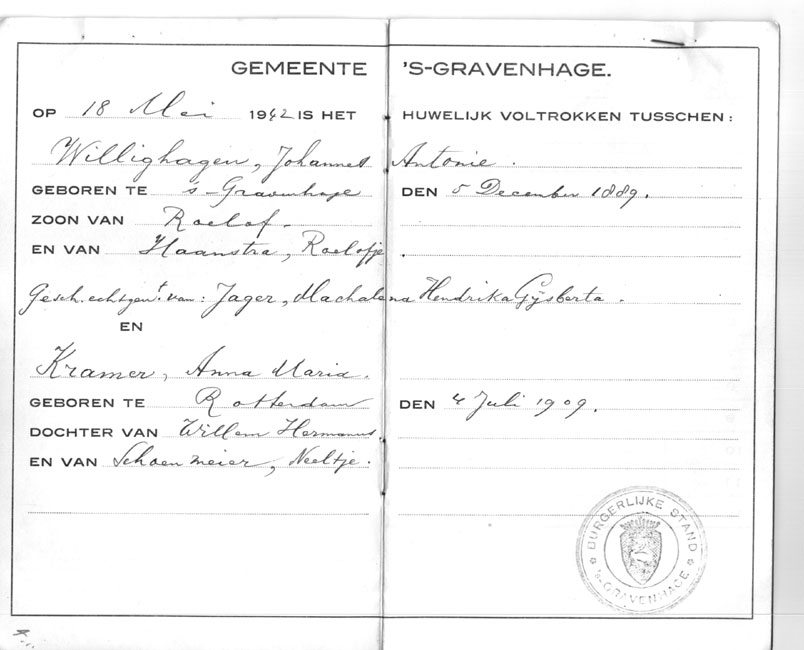 GEMEENTE 'S-GRAVENHAGE.
OP 18 Mei 1942 IS HET HUWELIJK VOLTROKKEN TUSSCHEN:
Willighagen, Johannes Antonie.
GEBOREN TE 's-Gravenhage DEN 5 December 1889.
ZOON VAN Roelof.
EN VAN Haanstra, Roelofje.
Gesch. echtgent. van: Jager, Machalena Hendrika Gijsberta.
EN
Kramer, Anna Maria.
GEBOREN TE Rotterdam DEN 4 Juli 1909.
DOCHTER VAN Willem Hermanus.
EN VAN Schoenmeier, Neeltje.
BURGERLIJKE STAND
'S-GRAVENHAGE